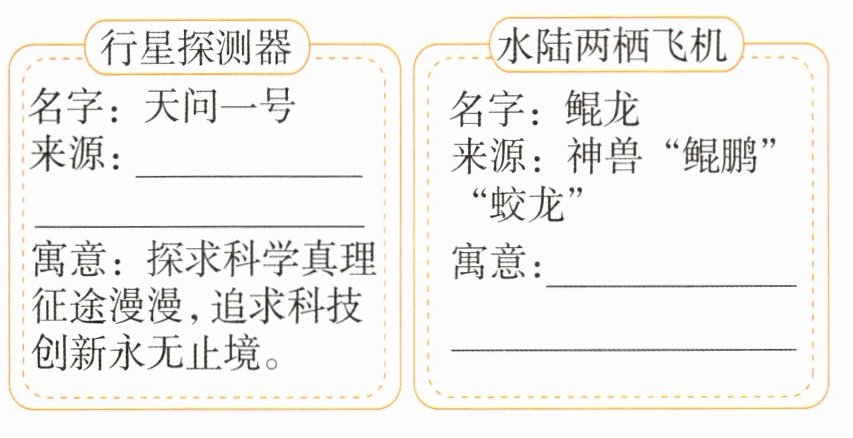 行星探测器
名字：天问一号
来源：
寓意：探求科学真理
征途漫漫，追求科技
创新永无止境。
水陆两栖飞机
名字：鲲龙
来源：神兽“鲲鹏”
“蛟龙”
寓意：